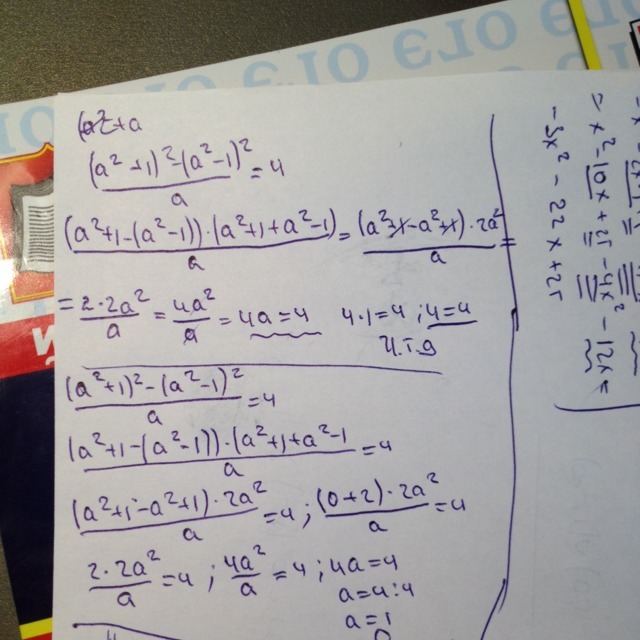 (a²+a
(a²+1)²-(a²-1)²/a = 4
(a²+1-(a²-1))·(a²+1+a²-1)/a = (a²+x-a²+x)·2a²/a =
= 2·2a²/a = 4a²/a = 4a=4 4·1=4 ; 4=4
Ч.Т.Д
(a²+1)²-(a²-1)²/a = 4
(a²+1-(a²-1))·(a²+1+a²-1/a = 4
(a²+1-a²+1)·2a²/a = 4 ; (0+2)·2a²/a = 4
2·2a²/a = 4 ; 4a²/a = 4 ; 4a=4
a=4:4
a=1
= x²-10x+25-4x²-12x=
-3x²-22x+25